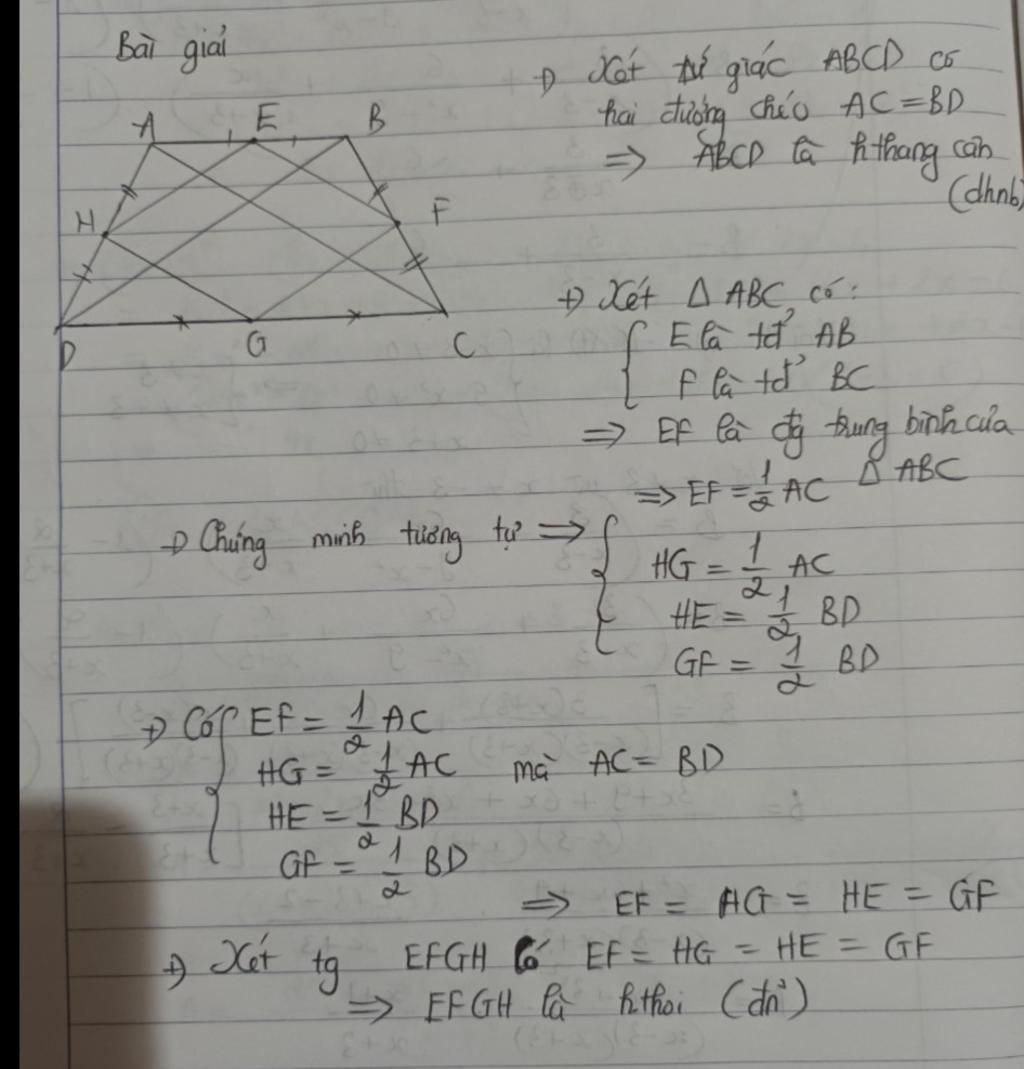 Bài giải
A E B
H F
D G C
+) Xét tứ giác ABCD có
hai đường chéo AC = BD
=> ABCD là hthang cân
(dhnb)
+) Xét Δ ABC có:
{ E là tđ' AB
F là tđ' BC
=> EF là đg trung bình của
Δ ABC
=> EF = 1/2 AC
+) Chứng minh tương tự => { HG = 1/2 AC
HE = 1/2 BD
GF = 1/2 BD
+) Có { EF = 1/2 AC
HG = 1/2 AC mà AC = BD
HE = 1/2 BD
GF = 1/2 BD
=> EF = HG = HE = GF
+) Xét tg EFGH có EF = HG = HE = GF
=> EFGH là hthoi (đn')